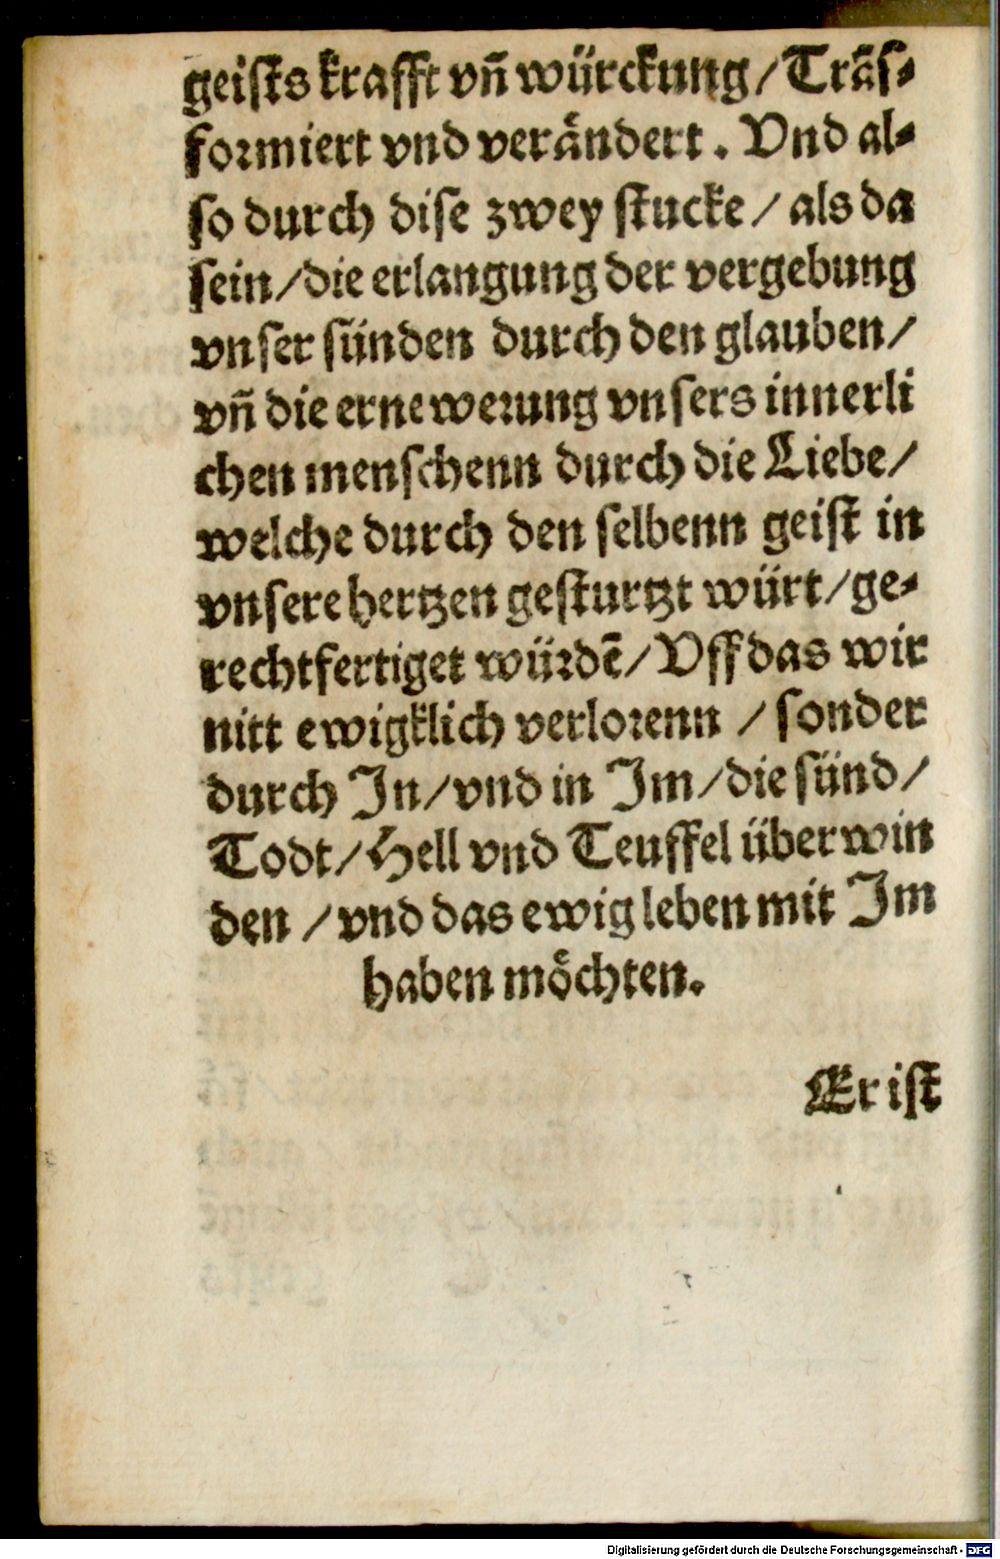 geiſts krafft vñ würckung/Trãſ⸗
formiert vnd verändert. Vnd al⸗
ſo durch diſe zwey ſtucke/ als da
ſein/die erlangung der vergebung
vnſer ſünden durch den glauben/
vñ die ernewerung vnſers innerli
chen menſchenn durch die Liebe/
welche durch den ſelbenn geiſt in
vnſere hertzen geſturtzt würt/ge⸗
rechtfertiget würdẽ/Vff das wir
nitt ewigklich verlorenn / ſonder
durch In/vnd in Im/die ſünd/
Todt/Hell vnd Teuffel überwin
den /vnd das ewig leben mit Im
haben möchten.
Er iſt
Digitalisierung gefördert durch die Deutsche Forschungsgemeinschaft - DFG